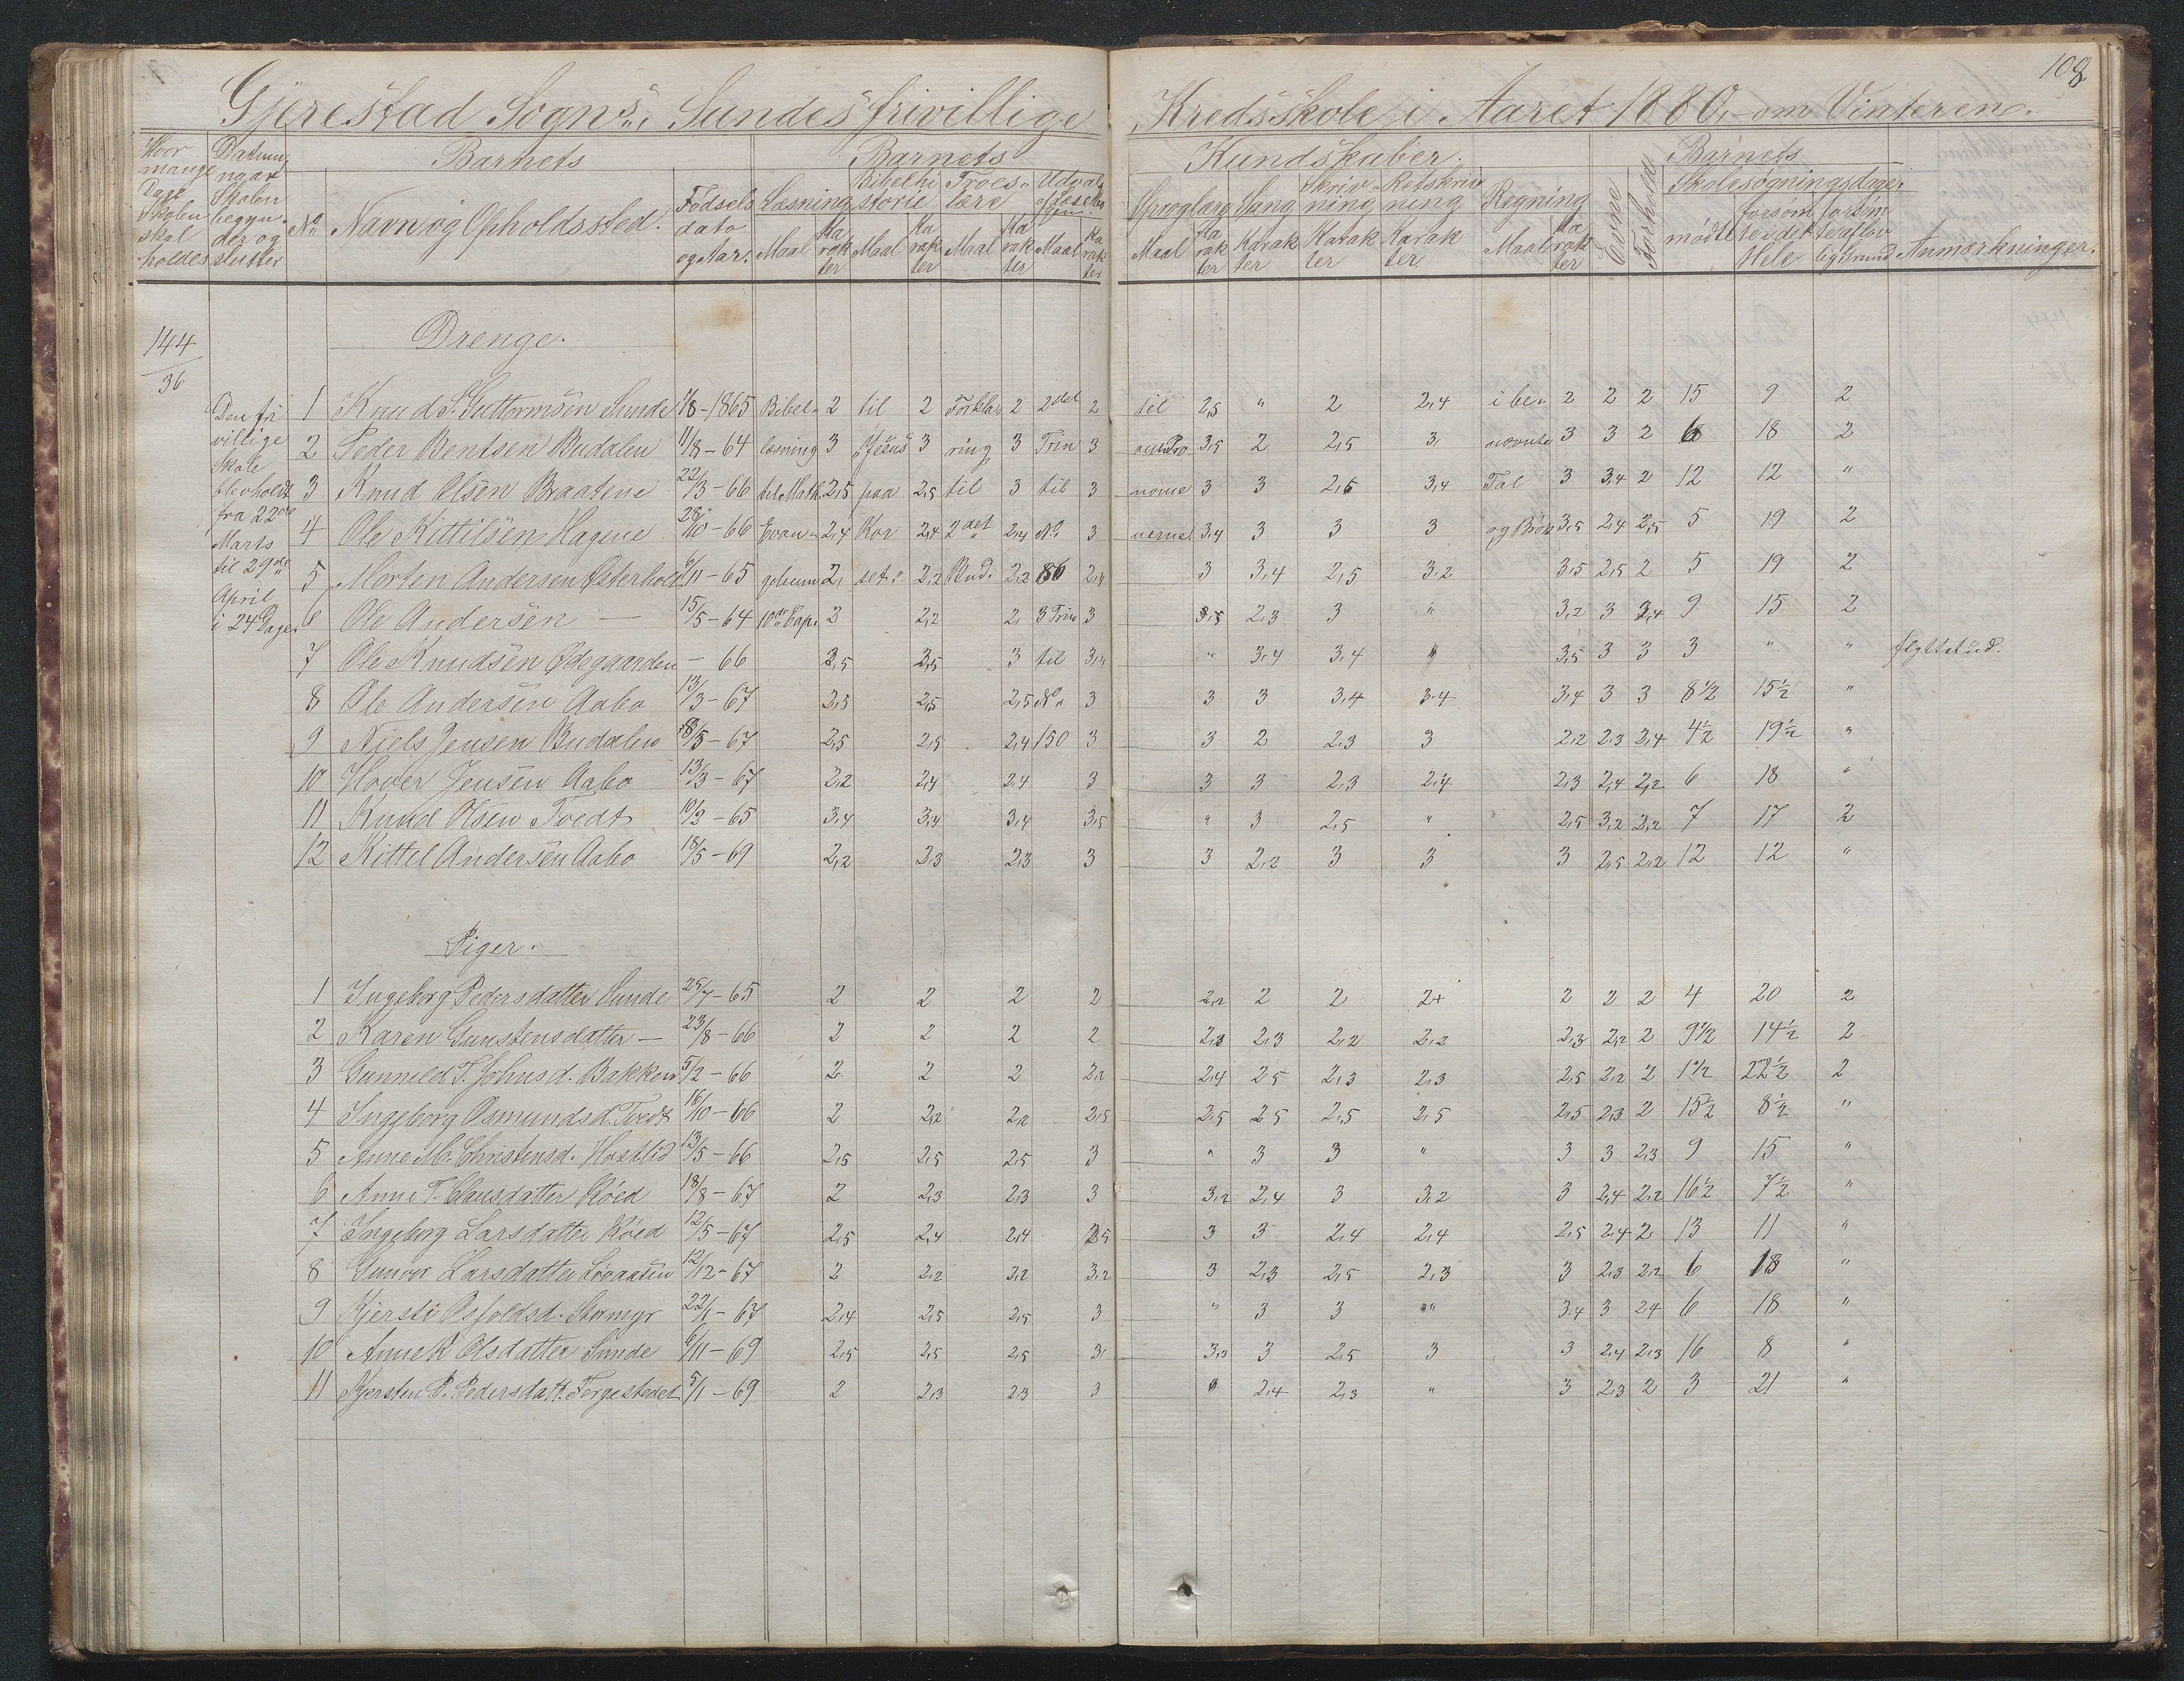 108
Gjerestad Sogns, Sundes frivillige Kredsskole i Aaret 1880, om Vinteren.
Hvor mange Dage Skolen skal holdes
Datum naar Skolen begyn- der og slutter
Barnets
No Navn og Opholdssted. Fødsels dato og Aar.
Barnets Kundskaber.
Læsning Maal Karakter
Bibelhistorie Maal Karakter
Troeslære Maal Karakter
Udvalg af Læsebogen Maal Karakter
Sproglære Maal Karakter
Sang Karakter
Skrivning Karakter
Retskrivning Karakter
Regning Maal Karakter
Evne
Forhold
Barnets Skolesøgningsdage.
mødte
forsømte i det Hele
forsømte af lovlig Grund
Anmærkninger.
144/36
Den fri villige Skole blev holdt fra 22de Marts til 29de April i 24 Dage.
Drenge.
1 Knud S. Guttormsen Sunde 7/8-1865 Bibel- 2 til 2 Forkla- 2 2det 2 til 2,5 " 2 2,4 i be- 2 2 2 15 9 2
2 Peder Bentsen Budalen 11/8-64 læsning 3 "Jesus 3 ring 3 Trin 3 3,5 2 2,5 3 nævnte 3 3 2 6 18 2
3 Knud Olsen Braatene 22/3-66 til Math. 2,5 paa 2,5 til 3 til 3 3 3 2,5 3,4 Tal 3 3,4 2 12 12 "
4 Ole Kittilsen Hagene 28/10-66 Evan- 2,4 Kor 2,4 2det 2,4 No 3 3,4 3 3 3 og Brøk 3,5 2,4 2,5 5 19 2
5 Morten Andersen Østerholt 6/11-65 gelium 2, set." 2,2 Bud. 2,2 86 2,4 3 3,4 2,5 3,2 3,5 2,5 2 5 19 2
6 Ole Andersen — 15/5-64 10de Cap. 3 2,2 2, 3 Trin 3 3,5 2,3 3 " 3,2 3 3,4 9 15 2
7 Ole Knudsen Ødegaarden - 66 3,5 3,5 3 til 3,4 " 3,4 3,4 " 3,5 3 3 3 " " flyttet ud.
8 Ole Andersen Aabo 13/3-67 2,5 2,5 2,5 No 3 3 3 3,4 3,4 3,4 3 3 8½ 15½ "
9 Niels Jensen Budalen 18/5-67 2,5 2,5 2,4 150 3 3 2 2,3 3 2,2 2,3 2,4 4½ 19½ "
10 Hover Jensen Aabo 13/3-67 2,2 2,4 2,4 3 3 3 2,3 2,4 2,3 2,4 2,2 6 18 "
11 Knud Olsen Tvedt 10/2-65 3,4 3,4 3,4 3,5 " 3 2,5 " 2,5 3,2 2,2 7 17 2
12 Kittel Andersen Aabo 18/5-69 2,2 2,3 2,3 3 3 2,2 3 3 3 2,5 2,2 12 12 "
Piger.
1 Ingeborg Pedersdatter Sunde 25/7-65 2 2 2 2 2,2 2 2 2+ 2 2 2 4 20 2
2 Karen Gunstensdatter — 23/8-66 2 2 2 2 2,3 2,3 2,2 2,2 2,3 2,2 2 9½ 14½ 2
3 Gunnild T. Johnsd. Bakken 5/2-66 2 2 2 2,2 2,4 2,5 2,3 2,3 2,5 2,2 2 1½ 22½ 2
4 Ingeborg Osmundsd. Tvedt 16/10-66 2 2,2 2,2 2,5 2,5 2,5 2,5 2,5 2,5 2,3 2 15½ 8½ "
5 Anne M. Christensd. Hastlid 13/5-66 2,5 2,5 2,5 3 " 3 3 " 3 3 2,3 9 15 "
6 Anne T. Clausdatter Røed 18/8-67 2 2,3 2,3 3 3,2 2,4 3 3,2 3 2,4 2,2 16½ 7½ "
7 Ingeborg Larsdatter Røed 12/5-67 2,5 2,4 2,4 2,5 3 3 2,4 2,4 2,5 2,4 2 13 11 "
8 Gunvor Larsdatter Løvaasen 12/12-67 2 2,2 2,2 3,2 3 2,3 2,5 2,3 3 2,3 2,2 6 18 "
9 Kjersti Osfoldsd. Stamyr 22/1-67 2,4 2,5 2,5 3 " 3 3 " 3,4 3 2,4 6 18 "
10 Anne K Olsdatter Sunde 6/11-69 2,5 2,5 2,5 3 3,3 3 2,5 3 3 2,4 2,3 16 8 "
11 Kjersten P. Pedersdatt. Torgestedet 5/1-69 2 2,3 2,3 3 " 2,4 2,3 " 3 2,3 2 3 21 "